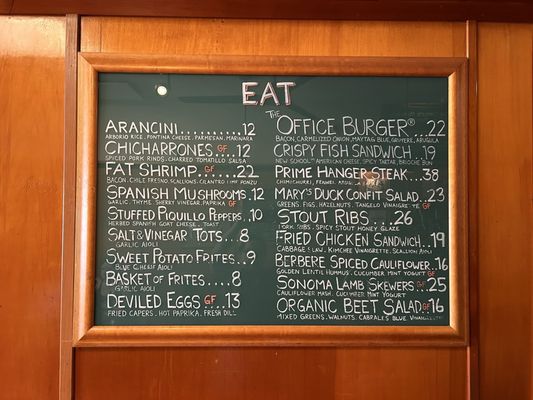 EAT
ARANCINI..........12
ARBORIO RICE, FONTINA CHEESE, PARMESAN, MARINARA
CHICHARRONES GF...12
SPICED PORK RINDS, CHARRED TOMATILLO SALSA
FAT SHRIMP. GF......22
BACON, CHILE FRESNO, SCALLIONS, CILANTRO LIME PONZU
SPANISH MUSHROOMS..12
GARLIC, THYME, SHERRY VINEGAR, PAPRIKA GF
STUFFED PIQUILLO PEPPERS..10
HERBED SPANISH GOAT CHEESE, TOAST
SALT & VINEGAR TOTS...8
GARLIC AIOLI
SWEET POTATO FRITES..9
BLUE CHEESE AIOLI
BASKET OF FRITES....8
GARLIC AIOLI
DEVILED EGGS GF...13
FRIED CAPERS, HOT PAPRIKA, FRESH DILL
THE OFFICE BURGER®...22
BACON CARMELIZED ONION, MAYTAG BLUE, GRUYERE, ARUGULA
CRISPY FISH SANDWICH..19
NEW SCHOOL AMERICAN CHEESE, SPICY TARTAR, BRIOCHE BUN
PRIME HANGER STEAK...38
CHIMICHURRI, FENNEL
MARY'S DUCK CONFIT SALAD..23
GREENS, FIGS, HAZELNUTS, TANGELO VINAIGRETTE GF
STOUT RIBS...26
PORK RIBS, SPICY STOUT HONEY GLAZE
FRIED CHICKEN SANDWICH..19
CABBAGE SLAW, KIMCHEE VINAIGRETTE, SCALLION AIOLI
BERBERE SPICED CAULIFLOWER..16
GOLDEN LENTIL HUMMUS, CUCUMBER MINT YOGURT GF
SONOMA LAMB SKEWERS GF 25
CAULIFLOWER MASH, CUCUMBER MINT YOGURT
ORGANIC BEET SALAD GF 16
MIXED GREENS, WALNUTS, CABRALES BLUE